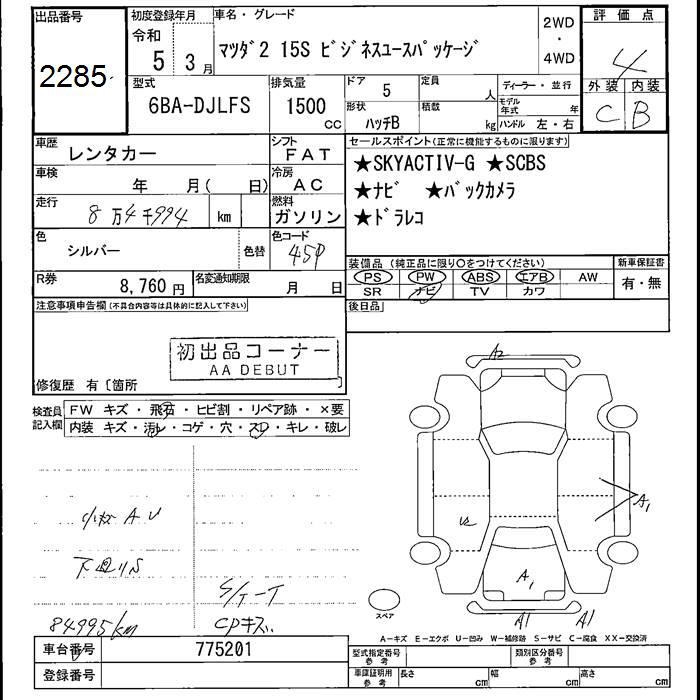 出品番号
2285
初度登録年月
令和
5 3月
車名・グレード
マツダ2 15S ビジネスユースパッケージ
2WD
・
4WD
評価点
4
外装 内装
C B
型式
6BA-DJLFS
排気量
1500 cc
ドア 5
定員 人
形状 ハッチB
積載 kg
ディーラー・並行
モデル年式 年
ハンドル 左・右
車歴 レンタカー
シフト FAT
車検 年 月( 日)
冷房 AC
走行 8万4千994 km
燃料 ガソリン
色 シルバー
色替
色コード 45P
R券 8,760円
名変通知期限 月 日
セールスポイント(正常に機能するものに限ります)
★SKYACTIV-G ★SCBS
★ナビ ★バックカメラ
★ドラレコ
装備品(純正品に限り〇をつけてください)
PS PW ABS エアB AW
SR ナビ TV カワ
新車保証書
有・無
後日品
注意事項申告欄(不具合内容等は具体的に記入して下さい)
初出品コーナー
AA DEBUT
修復歴 有〔箇所 〕
検査員記入欄
FW キズ・飛石・ヒビ割・リペア跡・×要
内装 キズ・汚レ・コゲ・穴・スレ・キレ・破レ
小キズ A U
下廻りS
84995km
S/T-T
CPキズ
A2
A1
U2
A1
A1 A1
スペア
A-キズ E-エクボ U-凹み W-補修跡 S-サビ C-腐食 XX-交換済
車台番号 775201
登録番号
型式指定番号 参考
類別区分番号 参考
車庫証明用 参考 長さ cm 幅 cm 高さ cm